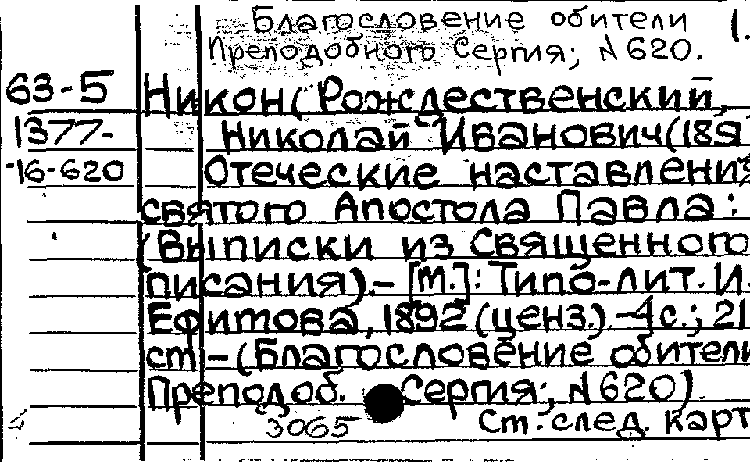 Благословение обители 1.
Преподобного Сергия; N 620.
63-5 Никон (Рождественский,
1377- Николай Иванович (189
16-620 Отеческие наставления
святого Апостола Павла:
(Выписки из Священного
писания).- [М.]: Типо-лит. И.
Ефимова, 1892 (ценз.).-4 с.; 21
см-(Благословение обители
Преподоб. Сергия;, N 620).
3065 См. след. карт